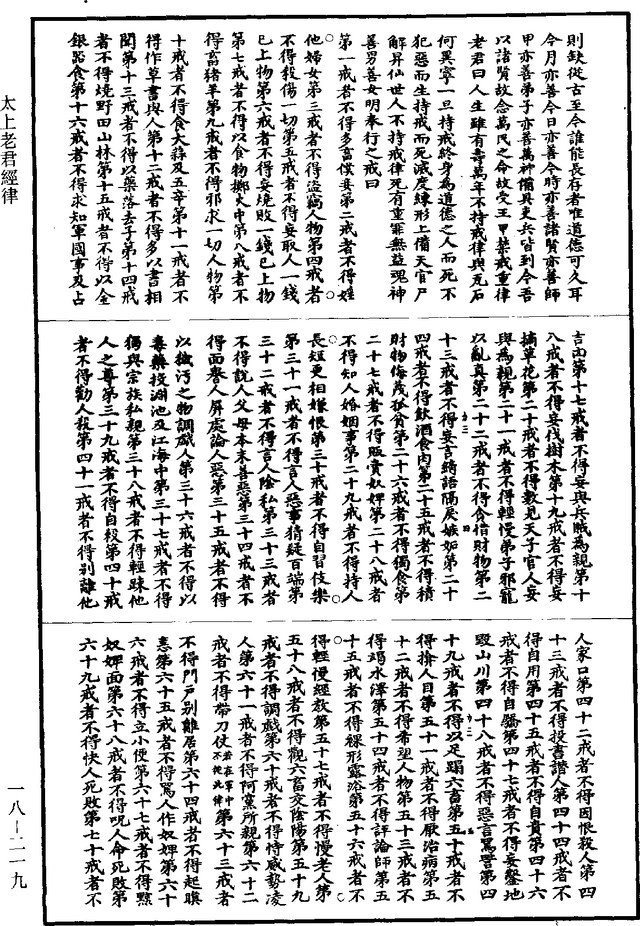 則缺從古至今誰能長存者唯道德可久耳
今月亦善今日亦善今時亦善諸賢亦善師
甲亦善弟子亦善萬神備具吏兵皆到今吾
以諸賢故念萬民之命故受王甲禁戒重律
老君曰人生雖有壽萬年不持戒律與瓦石
何異寧一旦持戒終身為道德之人而死不
犯惡而生持戒而死滅度練形上備天官尸
解昇仙世人不持戒律死有重罪無益魂神
善男善女明奉行之戒曰
第一戒者不得多畜僕妾第二戒者不得婬
他婦女第三戒者不得盜竊人物第四戒者
不得殺傷一切第五戒者不得妄取人一錢
已上物第六戒者不得妄燒敗一錢已上物
第七戒者不得以食物擲火中第八戒者不
得畜猪羊第九戒者不得邪求一切人物第
十戒者不得食大蒜及五辛第十一戒者不
得作草書與人第十二戒者不得多以書相
聞第十三戒者不得以藥落去子第十四戒
者不得燒野田山林第十五戒者不得以金
銀器食第十六戒者不得求知軍國事及占
吉凶第十七戒者不得妄與兵賊為親第十
八戒者不得妄伐樹木第十九戒者不得妄
摘草花第二十戒者不得數見天子官人妄
與為親第二十一戒者不得輕慢弟子邪寵
以亂真第二十二戒者不得貪惜財物第二
十三戒者不得妄言綺語隔戾嫉妬第二十
四戒者不得飲酒食肉第二十五戒者不得積
財物侮蔑孤貧第二十六戒者不得獨食第
二十七戒者不得販賣奴婢第二十八戒者
不得知人婚姻事第二十九戒者不得持人
長短更相嫌恨第三十戒者不得自習伎樂
第三十一戒者不得言人惡事猜疑百端第
三十二戒者不得言人陰私第三十三戒者
不得說人父母本末善惡第三十四戒者不
得面譽人屏處論人惡第三十五戒者不得
以穢汚之物調戲人第三十六戒者不得以
毒藥投淵池及江海中第三十七戒者不得
獨與宗族私親第三十八戒者不得輕踈他
人之尊第三十九戒者不得自殺第四十戒
者不得勸人殺第四十一戒者不得別離他
人家口第四十二戒者不得因恨殺人第四
十三戒者不得投書譖人第四十四戒者不
得自用第四十五戒者不得自貴第四十六
戒者不得自驕第四十七戒者不得妄鑿地
毀山川第四十八戒者不得惡言罵詈第四
十九戒者不得以足蹋六畜第五十戒者不
得搶人目第五十一戒者不得厭治病第五
十二戒者不得希望人物第五十三戒者不
得竭水澤第五十四戒者不得評論師第五
十五戒者不得裸形露浴第五十六戒者不
得輕慢經教第五十七戒者不得慢老人第
五十八戒者不得觀六畜交陰陽第五十九
戒者不得調戲第六十戒者不得恃威勢凌
人第六十一戒者不得阿黨所親第六十二
戒者不得帶刀仗若在軍中不從此律第六十三戒者
不得門戶別離居第六十四戒者不得起瞋
恚第六十五戒者不得罵人作奴婢第六十
六戒者不得立小便第六十七戒者不得黥
奴婢面第六十八戒者不得呪人命死敗第
六十九戒者不得快人死敗第七十戒者不
太上老君經律
一八—二一九